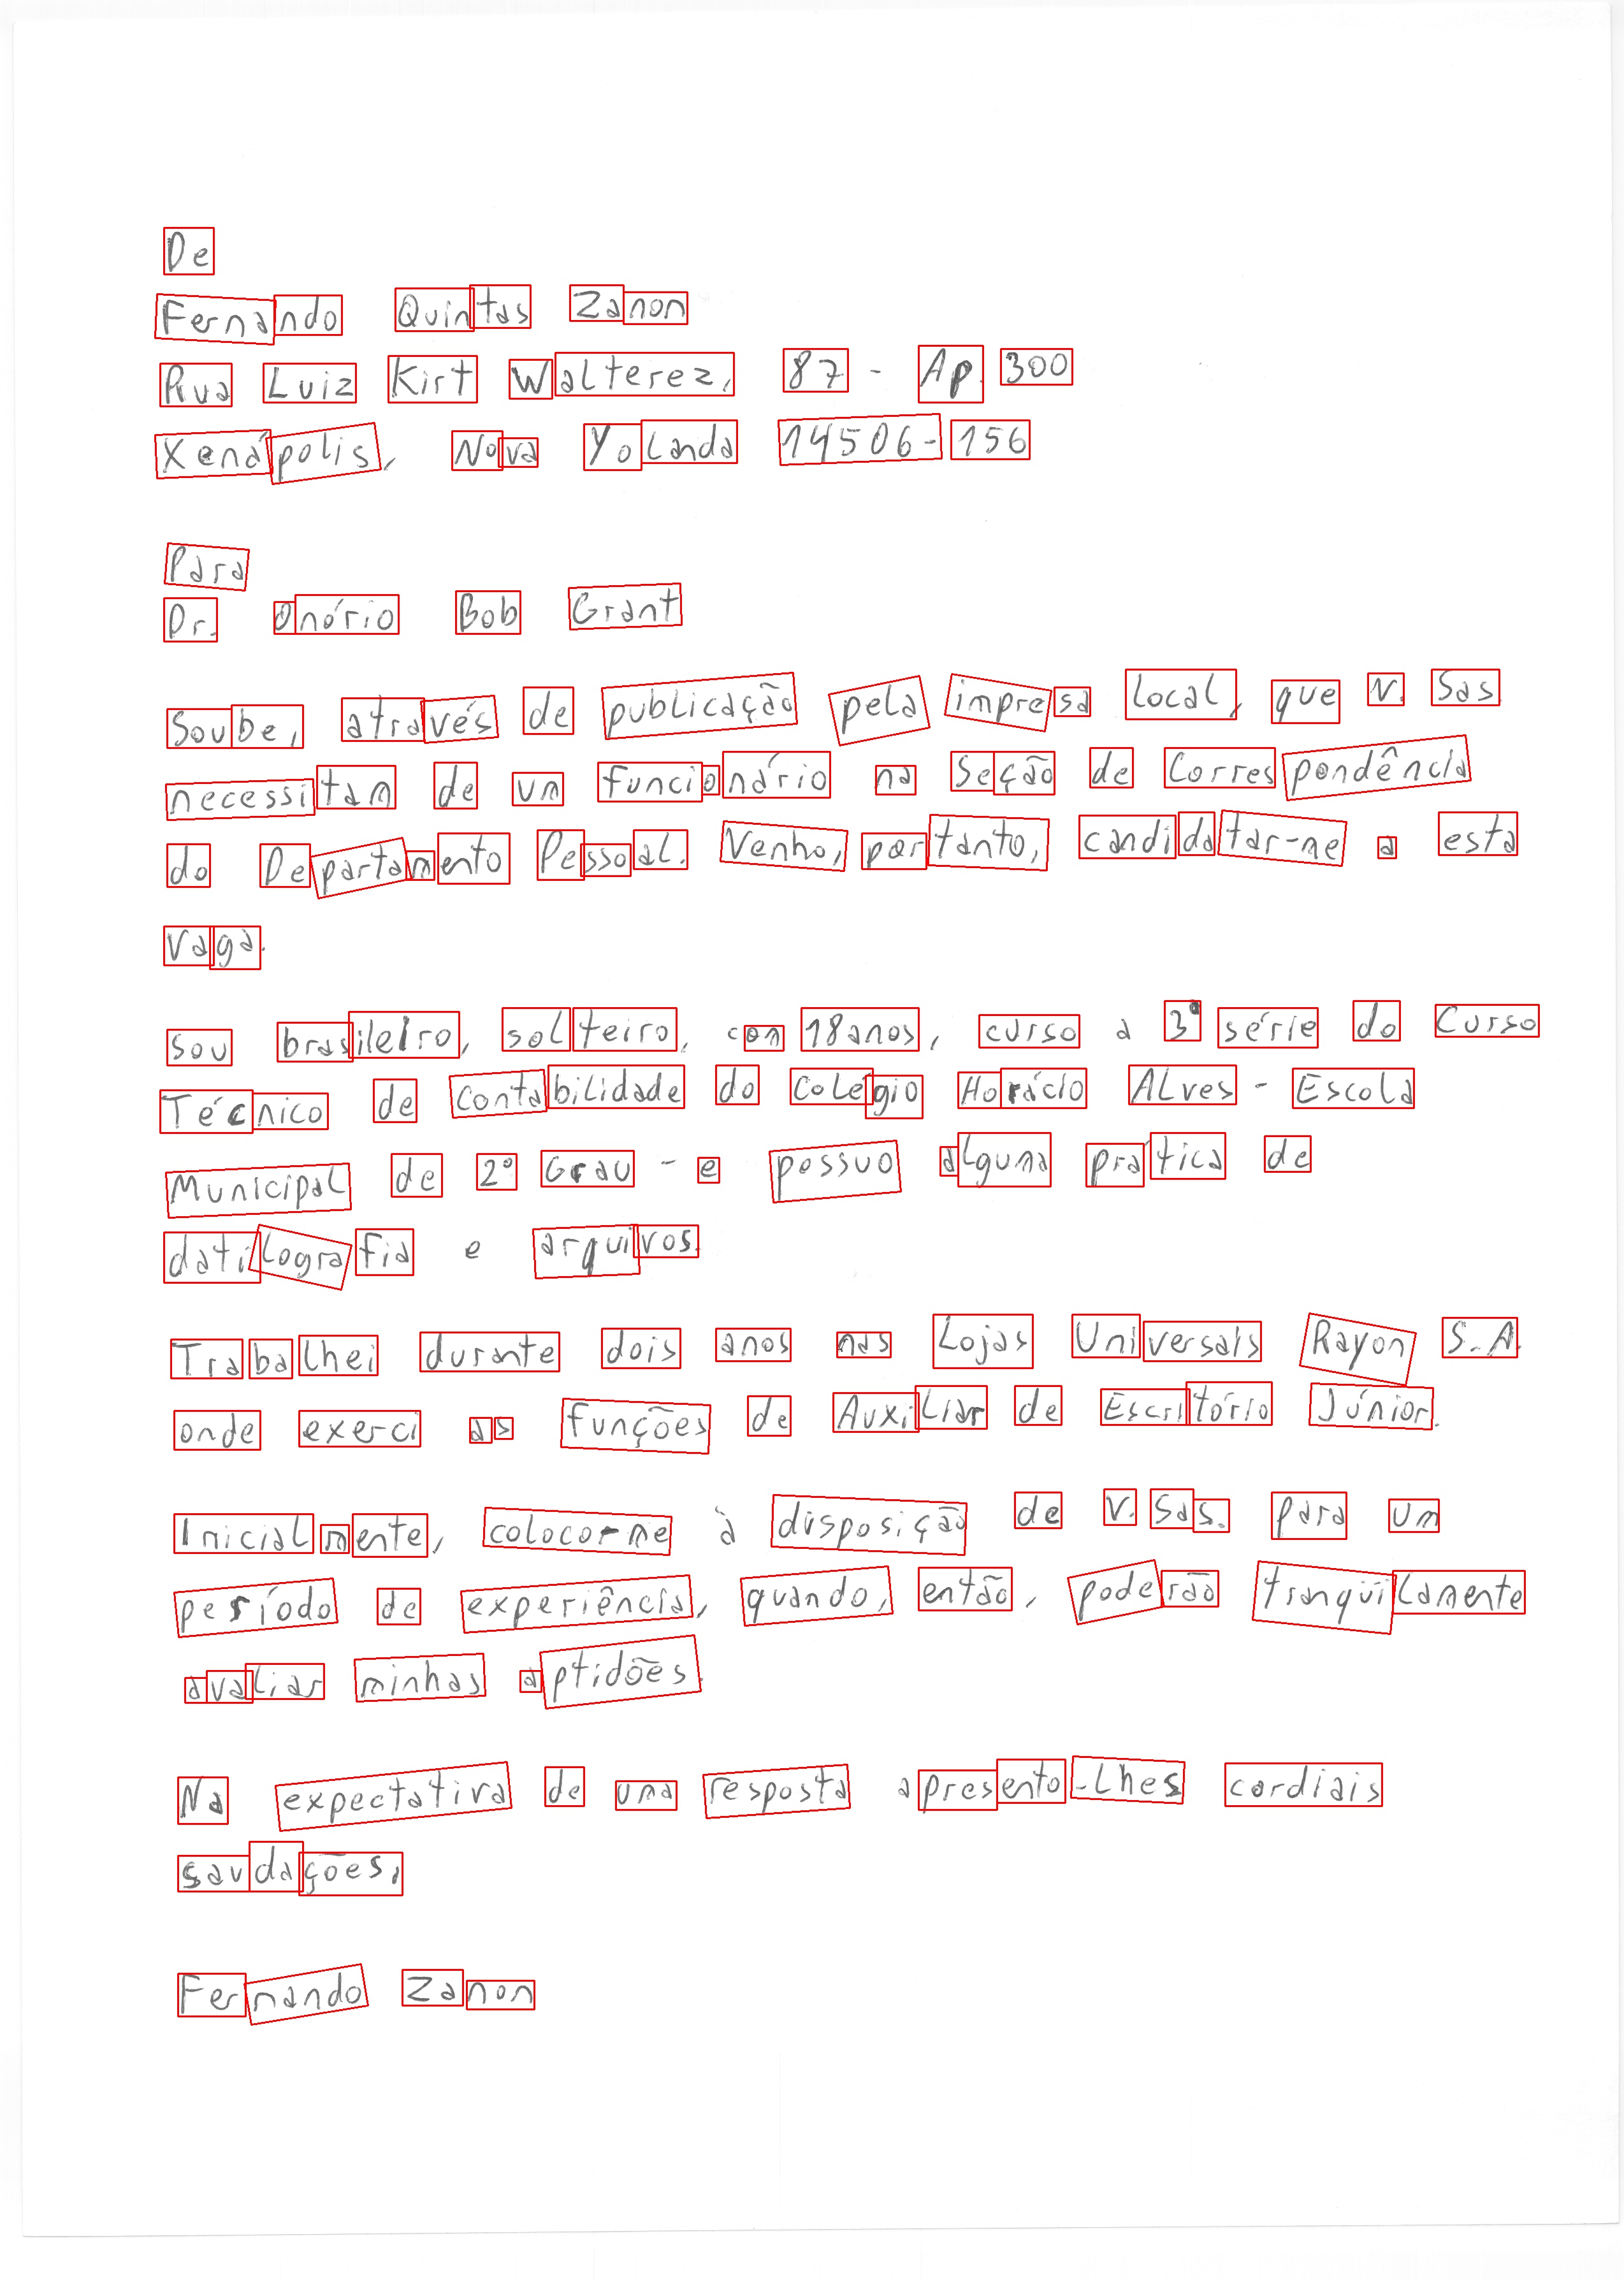 De
Fernando Quintas Zanon
Rua Luiz Kirt Walterez, 87 - Ap. 300
Xenápolis, Nova Yolanda 14506-156
Para
Dr. Onório Bob Grant
Soube, através de publicação pela impresa local, que V. Sas
necessitam de um funcionário na Seção de Correspondência
do Departamento Pessoal. Venho, portanto, candidatar-me a esta
vaga.
Sou brasileiro, solteiro, com 18 anos, curso a 3ª série do Curso
Técnico de Contabilidade do Colégio Horácio Alves - Escola
Municipal de 2º Grau - e possuo alguma prática de
datilografia e arquivos.
Trabalhei durante dois anos nas Lojas Universais Rayon S.A.
onde exerci as funções de Auxiliar de Escritório Júnior.
Inicialmente, coloco-me à disposição de V. Sas. para um
período de experiência, quando, então, poderão tranqüilamente
avaliar minhas aptidões.
Na expectativa de uma resposta apresento-lhes cordiais
saudações,
Fernando Zanon